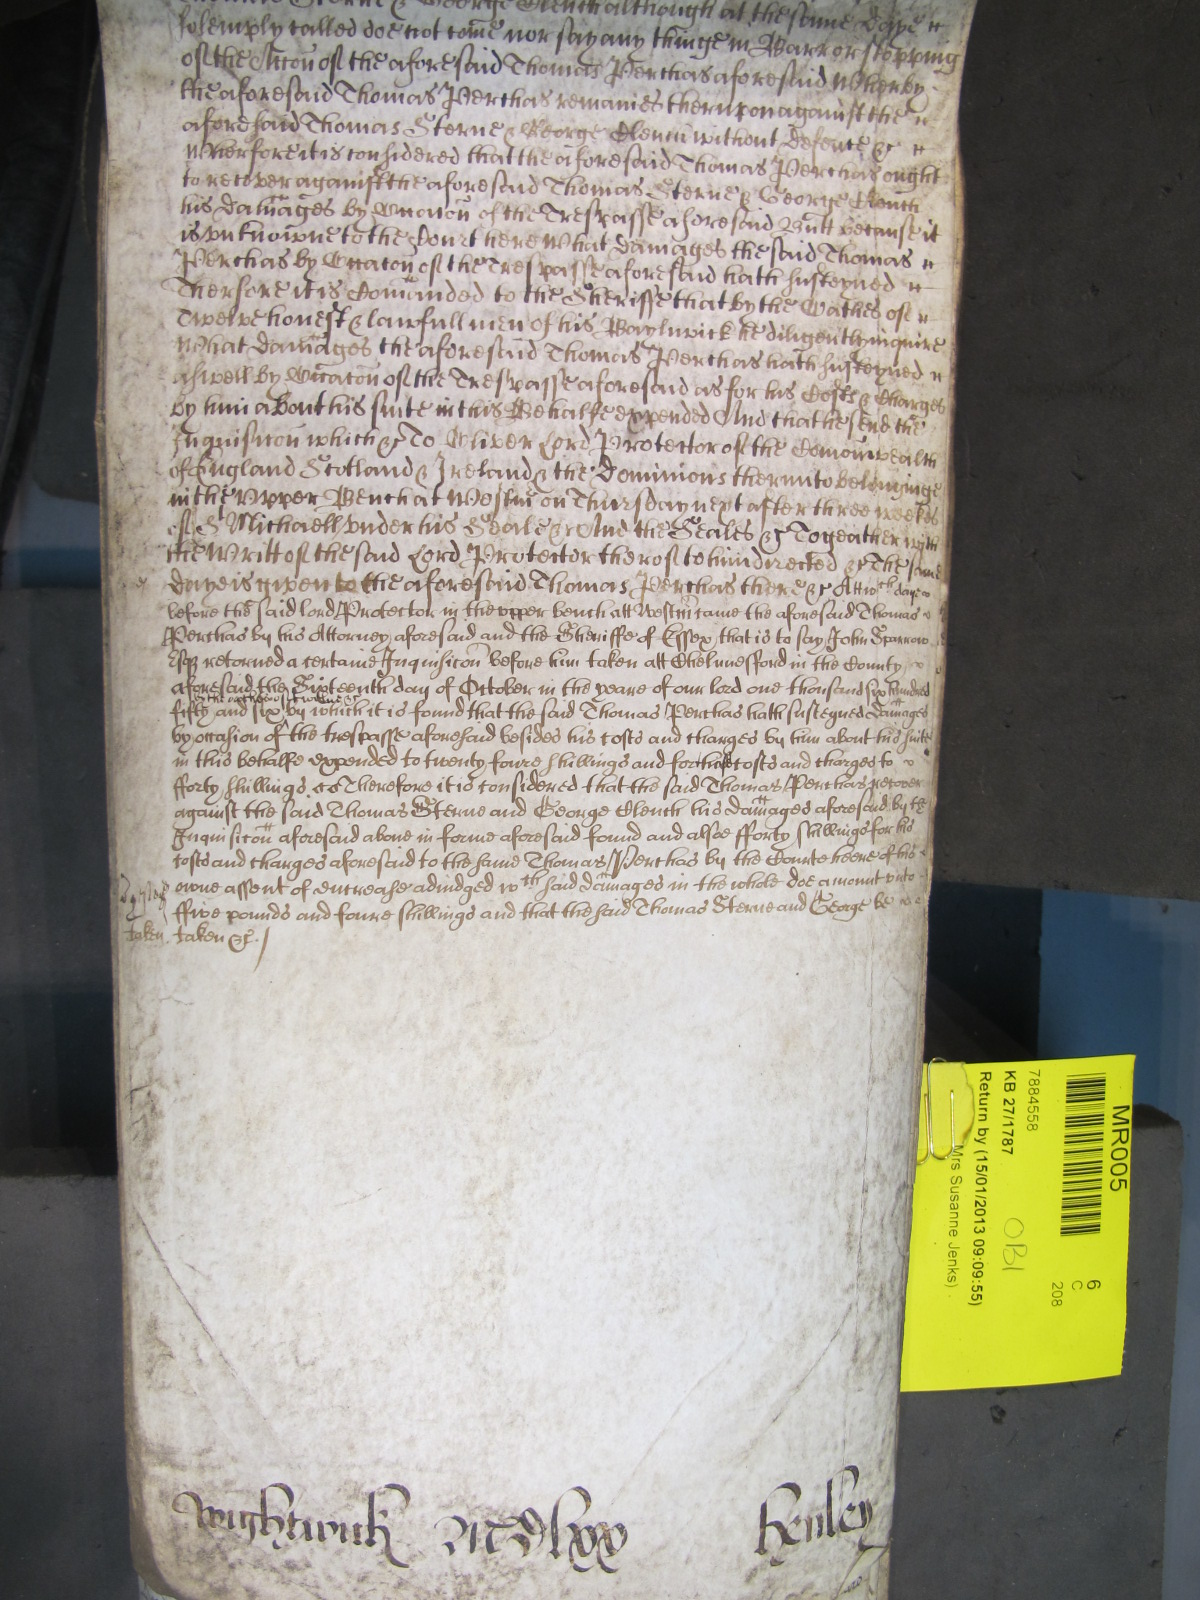 Thomas Sterne & George Clench although at the same daye
solemply called doe not come nor say any thinge in Barr or stopping
of the Accon of the aforesaid Thomas Perchas aforesaid Wherby
the aforesaid Thomas Perchas remaines therupon against the
aforesaid Thomas Sterne & George Clench without Defence &c
Wherfore it is considered that the aforesaid Thomas Perchas ought
to recover against the aforesaid Thomas Sterne & George Clench
his damages by Occacon of the Trespasse aforesaid Butt because it
is unknowne to the Court here What damages the said Thomas
Perchas by Occacon of the Trespasse aforesaid hath susteyned
Therfore it is Comanded to the Sheriffe that by the Oathes of
Twelve honest & lawfull men of his Baylywick he diligently inquire
What damages the aforesaid Thomas Perchas hath susteyned
aswell by Occacon of the Trespasse aforesaid as for his Costs & Charges
by him about his suite in this Behalfe expended And that he send the
Inquisicon which &c To Oliver Lord Protector of the Comonwealth
of England Scotland & Ireland & the Dominions therunto belonginge
in the Upper Bench at Westm on Thursday next after three weekes
of St Michaell under his Seale &c And the Seales &c Togeather with
the Writt of the said Lord Protector therof to him directed &c The same
daye is given to the aforesaid Thomas Perchas there &c Att wch day
before the said lord Protector in the upper bench att Westm came the aforesaid Thomas
Perchas by his Attorney aforesaid and the Sheriffe of Essex that is to say John Sparrow
Esqr retorned a certaine Inquisicon before him taken att Chelmesford in the County
aforesaid the Sixteenth day of October in the yeare of our lord one thousand six hundred
fifty and six by which it is found that the said Thomas Perchas hath susteyned damages
by occasion of the trespasse aforesaid besides his costs and charges by him about his suite
in this behalfe expended to twenty foure shillings and for those costs and charges to
fforty shillings &c Therefore it is considered that the said Thomas Perchas recover
against the said Thomas Sterne and George Clench his damages aforesaid by the
Inquisicon aforesaid above in forme aforesaid found and alsoe fforty shillings for his
costs and charges aforesaid to the same Thomas Perchas by the Courte heere of his
owne assent of encrease adiudged wth said damages in the whole doe amount unto
ffive pounds and foure shillings and that the said Thomas Sterne and George be
taken taken &c.
Wightwick Mdlxx Henley
MR005
6
C
208
7884558
KB 27/1787
OB1
Return by (15/01/2013 09:09:55)
Mrs Susanne Jenks)